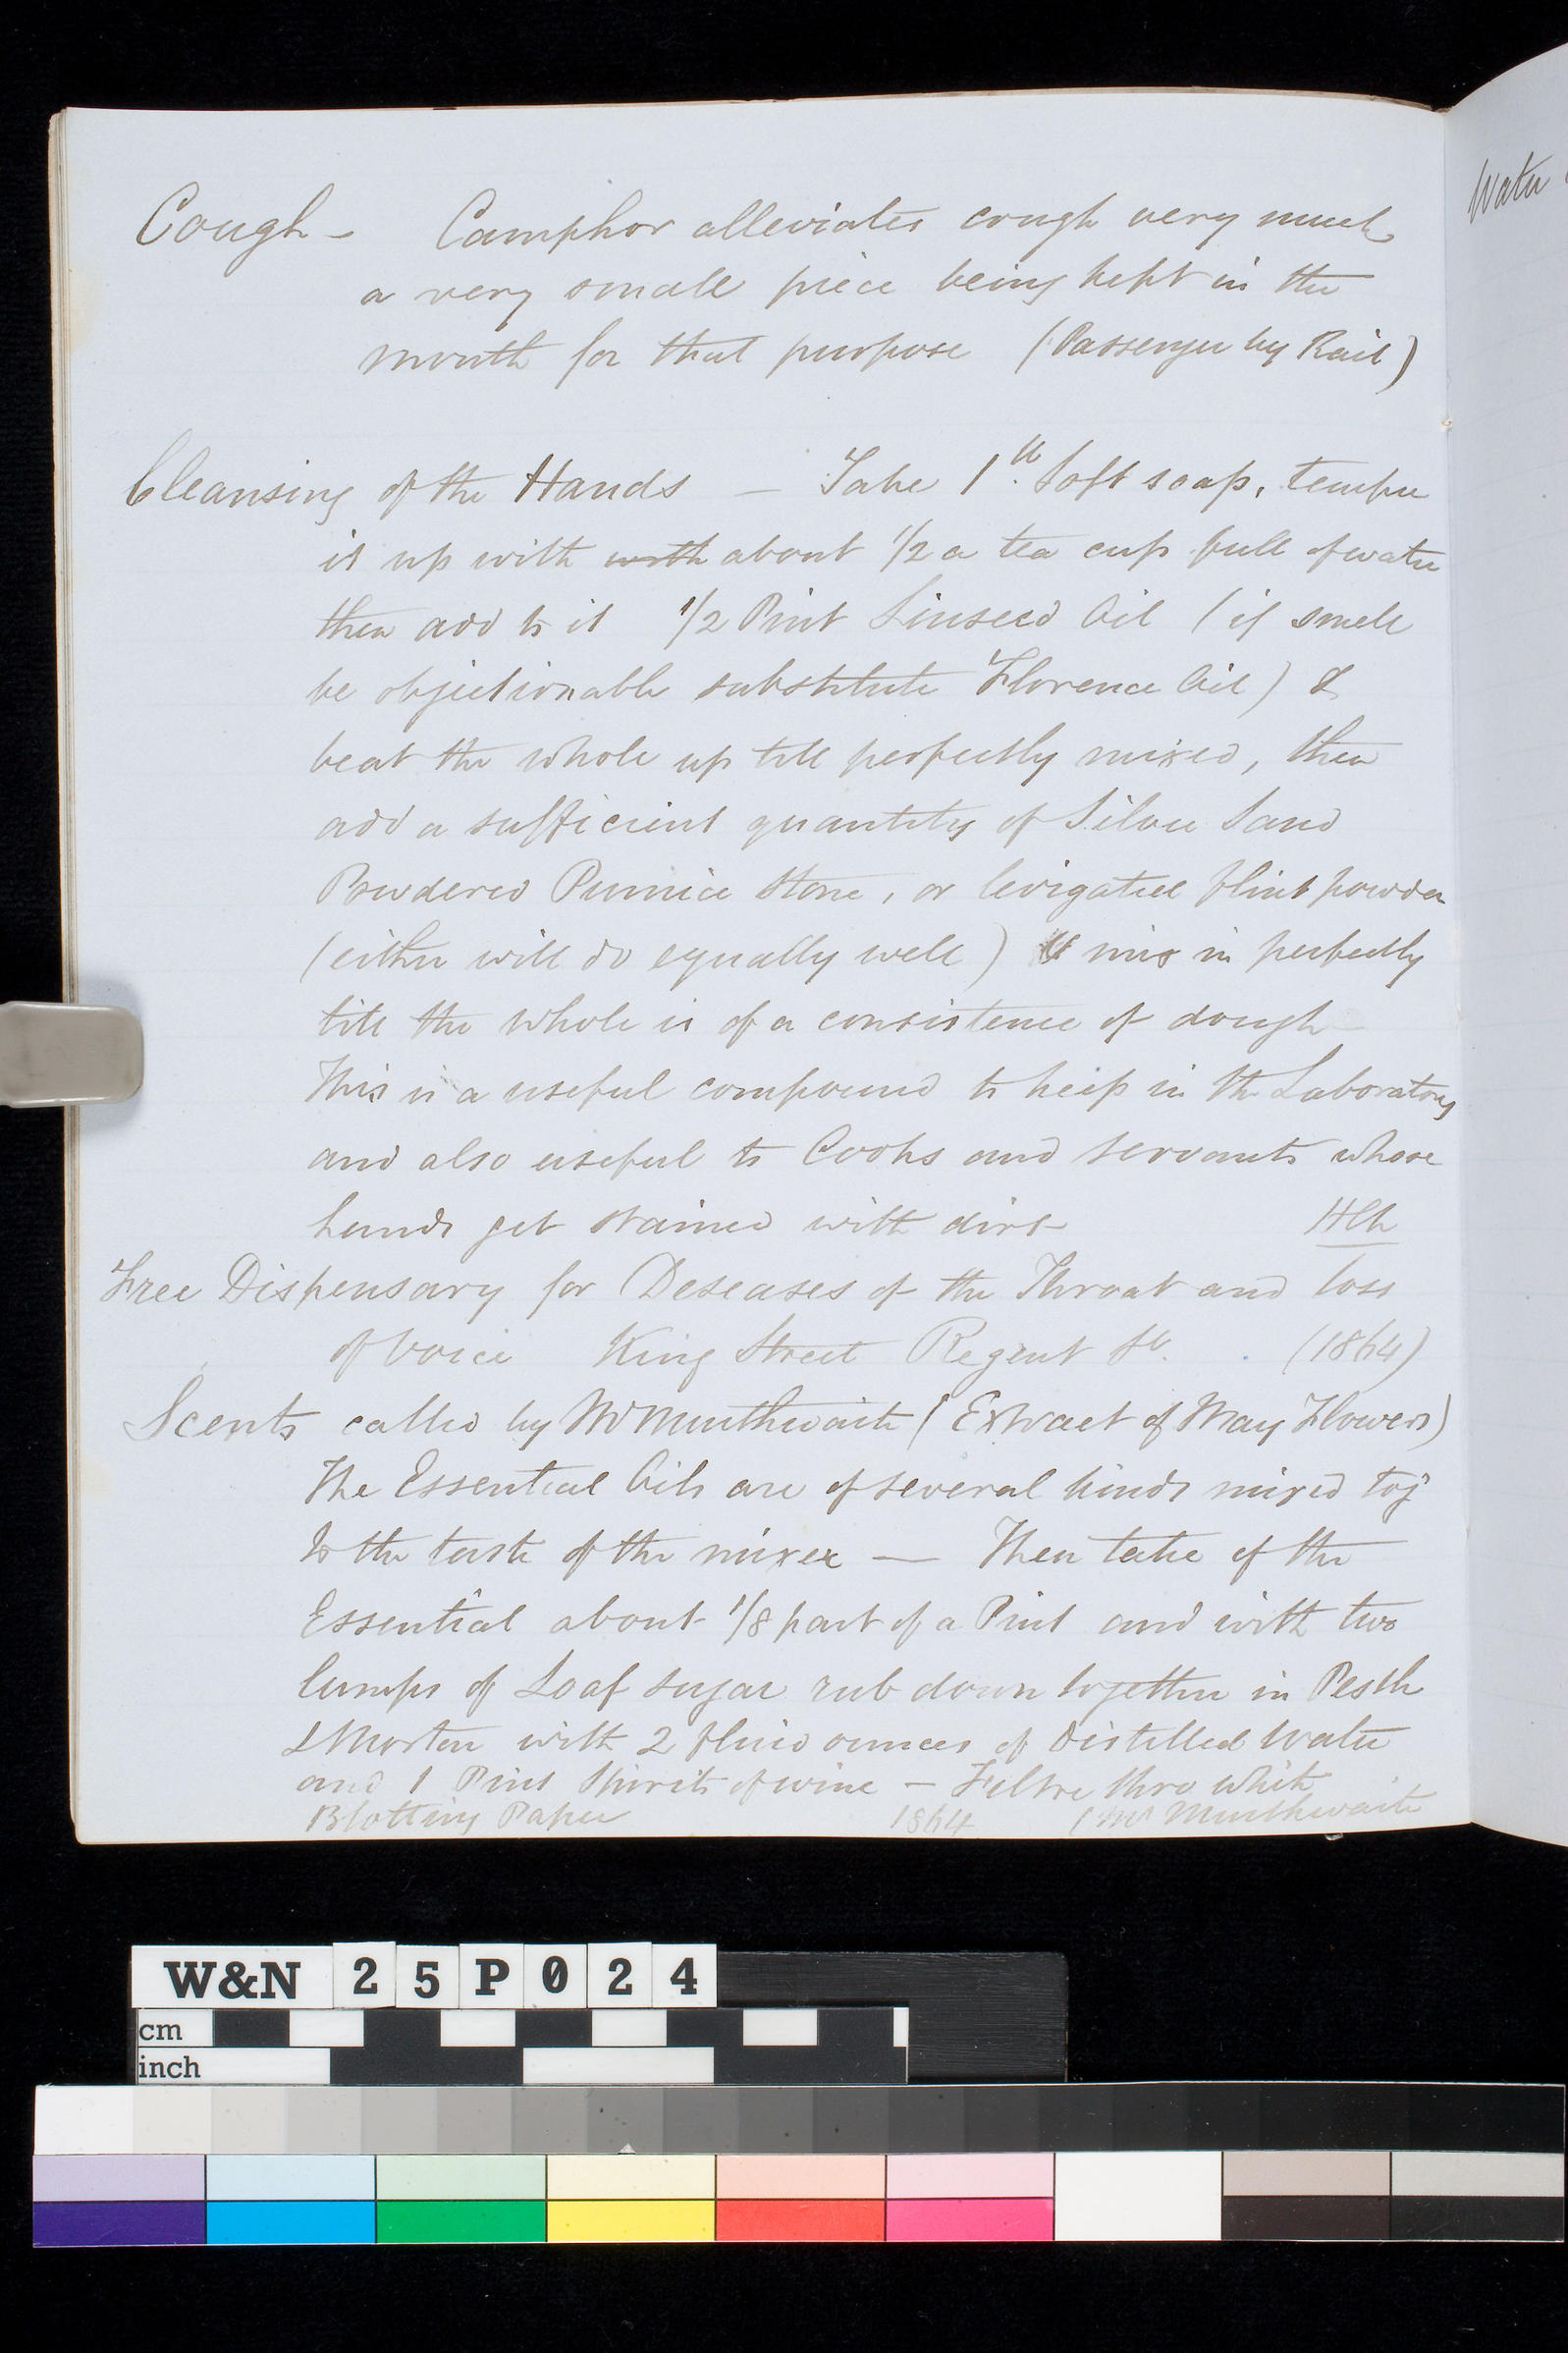 Cough - Camphor alleviates cough very much
a very small piece being kept in the
mouth for that purpose (Passenger by Rail)
Cleansing of the Hands — Take 1 lb. Soft soap, temper
it up with with about 1/2 a tea cup full of water
then add to it 1/2 Pint Linseed Oil (if smell
be objectionable substitute Florence Oil) &
beat the whole up till perfectly mixed, then
add a sufficient quantity of Silver Sand
Powdered Pumice Stone, or levigated flint powder
(either will do equally well) & mix in perfectly
till the whole is of a consistence of dough
This is a useful compound to keep in the Laboratory
and also useful to Cooks and servants whose
hands get stained with dirt
Free Dispensary for Deseases of the Throat and loss
of voice King Street Regent St. (1864)
Scents called by Mr Murthwaite (Extract of May Flowers)
The Essential Oils are of several kinds mixed tog
to the taste of the mixer — Then take of the
Essential about 1/8 part of a Pint and with two
lumps of Loaf sugar rub down together in Pestle
& Morter with 2 fluid ounces of Distilled Water
and 1 Pint Spirits of wine - Filtre thro white
Blotting Paper 1864 (Mr Murthwaite
Water
W&N 25P024
cm
inch